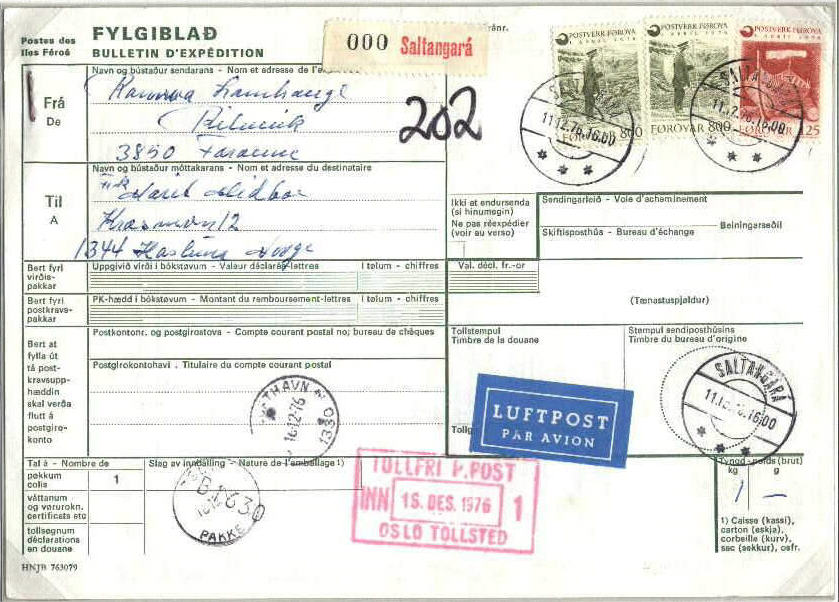 Postes des
Iles Féroé
FYLGIBLAÐ
BULLETIN D'EXPÉDITION
000 Saltangará
POSTVERK FØROYA
1. APRIL 1976
FØROYAR 800
POSTVERK FØROYA
1. APRIL 1976
FØROYAR 800
POSTVERK FØROYA
1. APRIL 1976
FØROYAR 125
SALTANGARÁ
11.12.76.16.00
SALTANGARÁ
11.12.76.16.00
202
Frá
De
Navn og bústaður sendarans - Nom et adresse de l'
3850
Til
A
Navn og bústaður móttakarans - Nom et adresse du destinataire
Marit Midboe
12
1344 Haslum Norge
Ikki at endursenda
(si hinumegin)
Ne pas réexpédier
(voir au verso)
Sendingarleið - Voie d'acheminement
Skiftisposthús - Bureau d'échange
Beiningarseðil
Bert fyri
virðis-
pakkar
Uppgivið virði i bókstøvum - Valeur déclarée-lettres
I tølum - chiffres
Val. décl. fr.-or
Bert fyri
postkravs-
pakkar
PK-hædd i bókstøvum - Montant du remboursement-lettres
I tølum - chiffres
(Tænastuspjøldur)
Bert at
fylla út
tá post-
kravsupp-
hæddin
skal verða
flutt á
postgiro-
konto
Postkontonr. og postgirostova - Compte courant postal no; bureau de chèques
Postgirokontohavi . Titulaire du compte courant postal
Tollstempul
Timbre de la douane
Stempul sendiposthúsins
Timbre du bureau d'origine
SALTANGARÁ
11.12.76.16.00
LUFTPOST
PAR AVION
16.12.76
1330
Tal á - Nombre de
pakkum
colis
1
váttanum
og vørurokn.
certificats etc
tollsøgnum
déclarations
en douane
Slag av innballing - Nature de l'emballage 1)
PAKKE
TOLLFRI P.POST
INN 15. DES. 1976 1
OSLO TOLLSTED
kg
g
1 –
1) Caisse (kassi),
carton (eskja),
corbeille (kurv),
sac (sekkur), osfr.
HNJB 763079